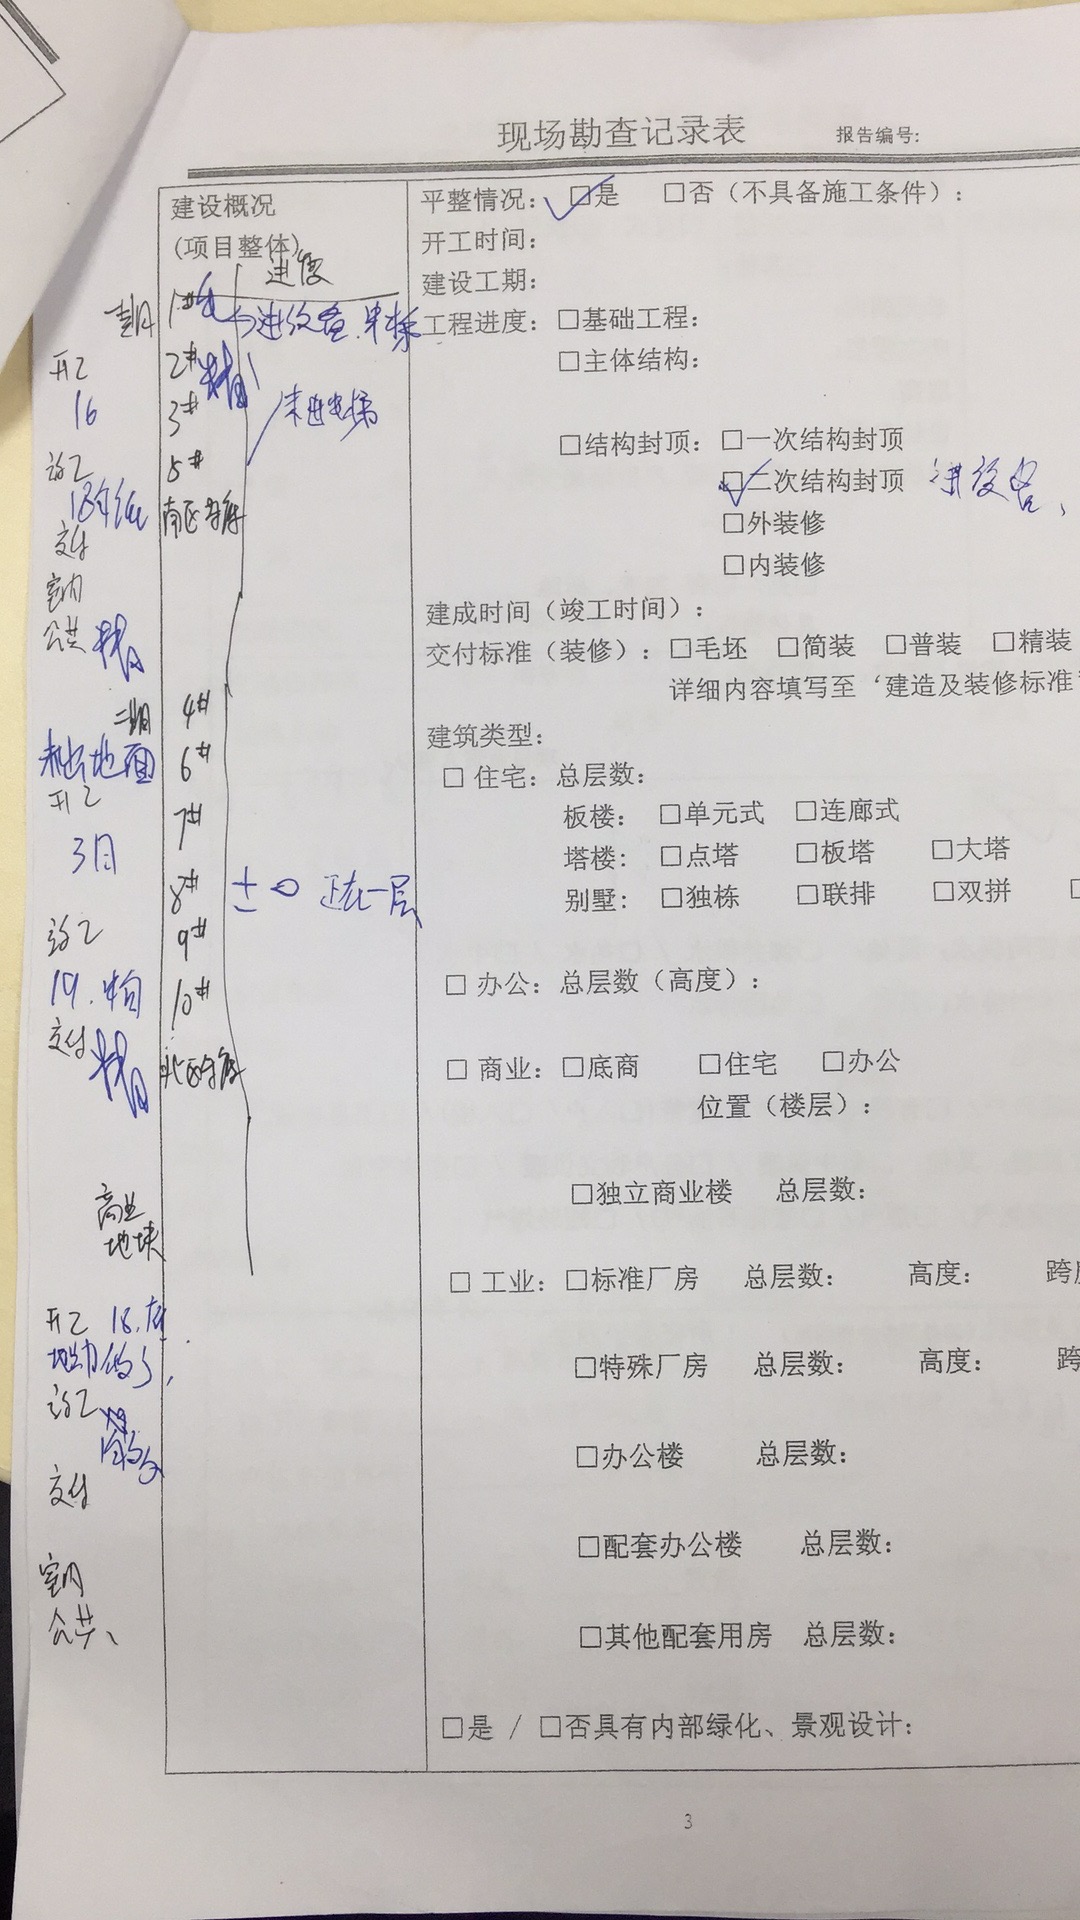 现场勘查记录表 报告编号:
建设概况
(项目整体)
进度
1#
2#
3#
未进电梯
5#
南区车库
4#
6#
7#
8# ±0 正在一层
9#
10#
北区车库
一期
开工
16
竣工
18年底
交付
室内
公共
二期
未出地面
开工
3月
竣工
19.
交付
商业
地块
开工 18.
竣工
交付
室内
公共、
平整情况: □是 □否(不具备施工条件):
开工时间:
建设工期:
工程进度: □基础工程:
□主体结构:
□结构封顶: □一次结构封顶
□二次结构封顶 进设备、
□外装修
□内装修
建成时间(竣工时间):
交付标准(装修): □毛坯 □简装 □普装 □精装
详细内容填写至‘建造及装修标准’
建筑类型:
□ 住宅: 总层数:
板楼: □单元式 □连廊式
塔楼: □点塔 □板塔 □大塔
别墅: □独栋 □联排 □双拼 □
□ 办公: 总层数(高度):
□ 商业: □底商 □住宅 □办公
位置(楼层):
□独立商业楼 总层数:
□ 工业: □标准厂房 总层数: 高度: 跨
□特殊厂房 总层数: 高度: 跨
□办公楼 总层数:
□配套办公楼 总层数:
□其他配套用房 总层数:
□是 / □否具有内部绿化、景观设计:
3